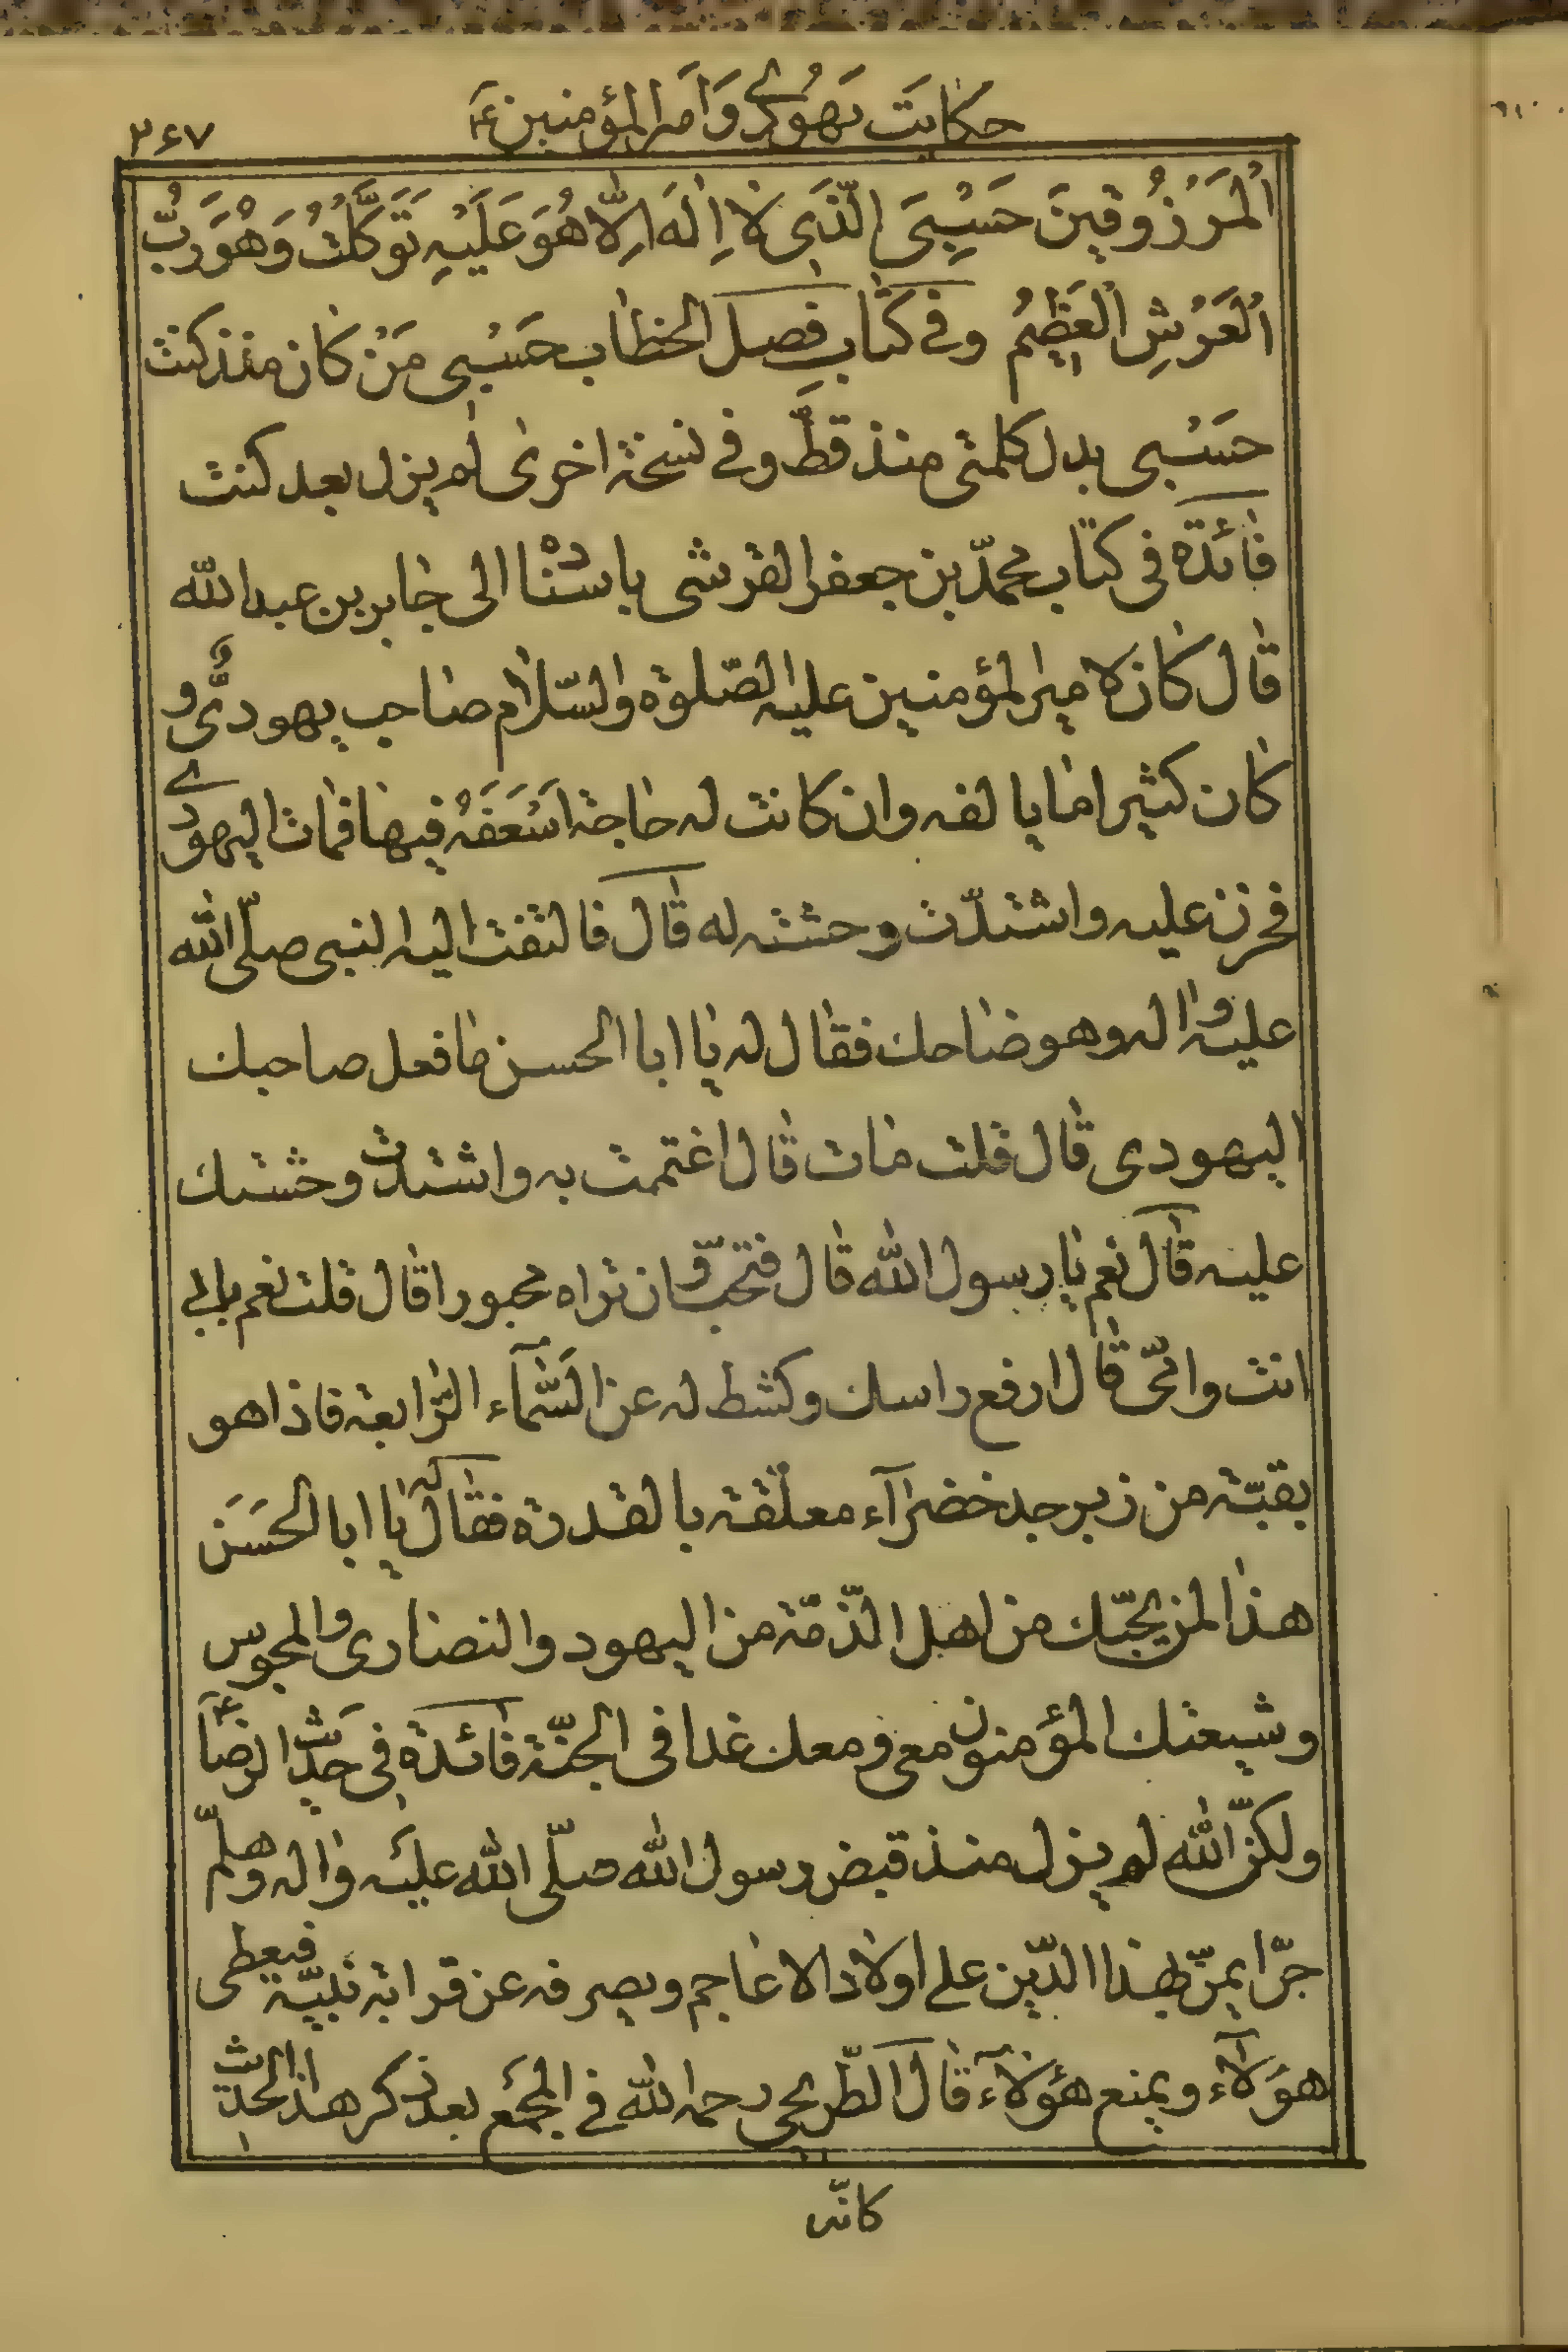 حکایت یهودی و امیر المؤمنین ع
۳۶۷
اَلْمَرْزُوقینَ حَسْبِیَ الَّذی لا اِلٰهَ اِلّا هُوَ عَلَیْهِ تَوَکَّلْتُ وَهُوَ رَبُّ
اَلْعَرْشِ الْعَظیٖمُ وفی کتاب فصل الخطاب حَسْبی مَنْ کان منذ کنت
حَسْبی بدل کلمتی منذ قطّ وفی نسخة اخری لم یزل بعد کنت
فائدة فی کتاب محمّد بن جعفر القرشی باسْناده الی جابر بن عبد الله
قال کان لامیر المؤمنین علیه الصّلوة والسّلام صاحب یهودیٌّ و
کان کثیرا ما یا لفه وان کانت له حاجة اَسْعَفَهُ فیها فمات الیهودی
فحزن علیه واشتدّت وحشته له قال فالتفت الیه النبی صلّی الله
علیه واله وهو ضاحک فقال له یا ابا الحسن ما فعل صاحبک
الیهودی قال قلت مات قال اغتممت به واشتدت وحشتک
علیه قال نعم یا رسول الله قال فتحبّ ان تراه محبورا قال قلت نعم بابی
انت وامّی قال ارفع راسک وکشط له عن السَّمآء الرّابعة فاذا هو
بقبّة من زبرجد خضرآء معلّقة بالقدرة فقال له یا ابا الحَسَن
هذا لمن یحبّک من اهل الذّمّة من الیهود والنصاری والمجوس
وشیعتک المؤمنون معی ومعک غدا فی الجنّة فائدة فی حَدیث الرضا ع
ولکنّ الله لم یزل منذ قبض رسول الله صلّی الله علیه واله وهلمّ
جرّا یمنّ بهذا الدّین علی اولاد الاعاجم ویصرفه عن قرابة نبیّه فیعطی
هؤلآء ویمنع هؤلآء قال الطّریحی رحمه الله فی المجمع بعد ذکر هذا الحدیث
کانّه